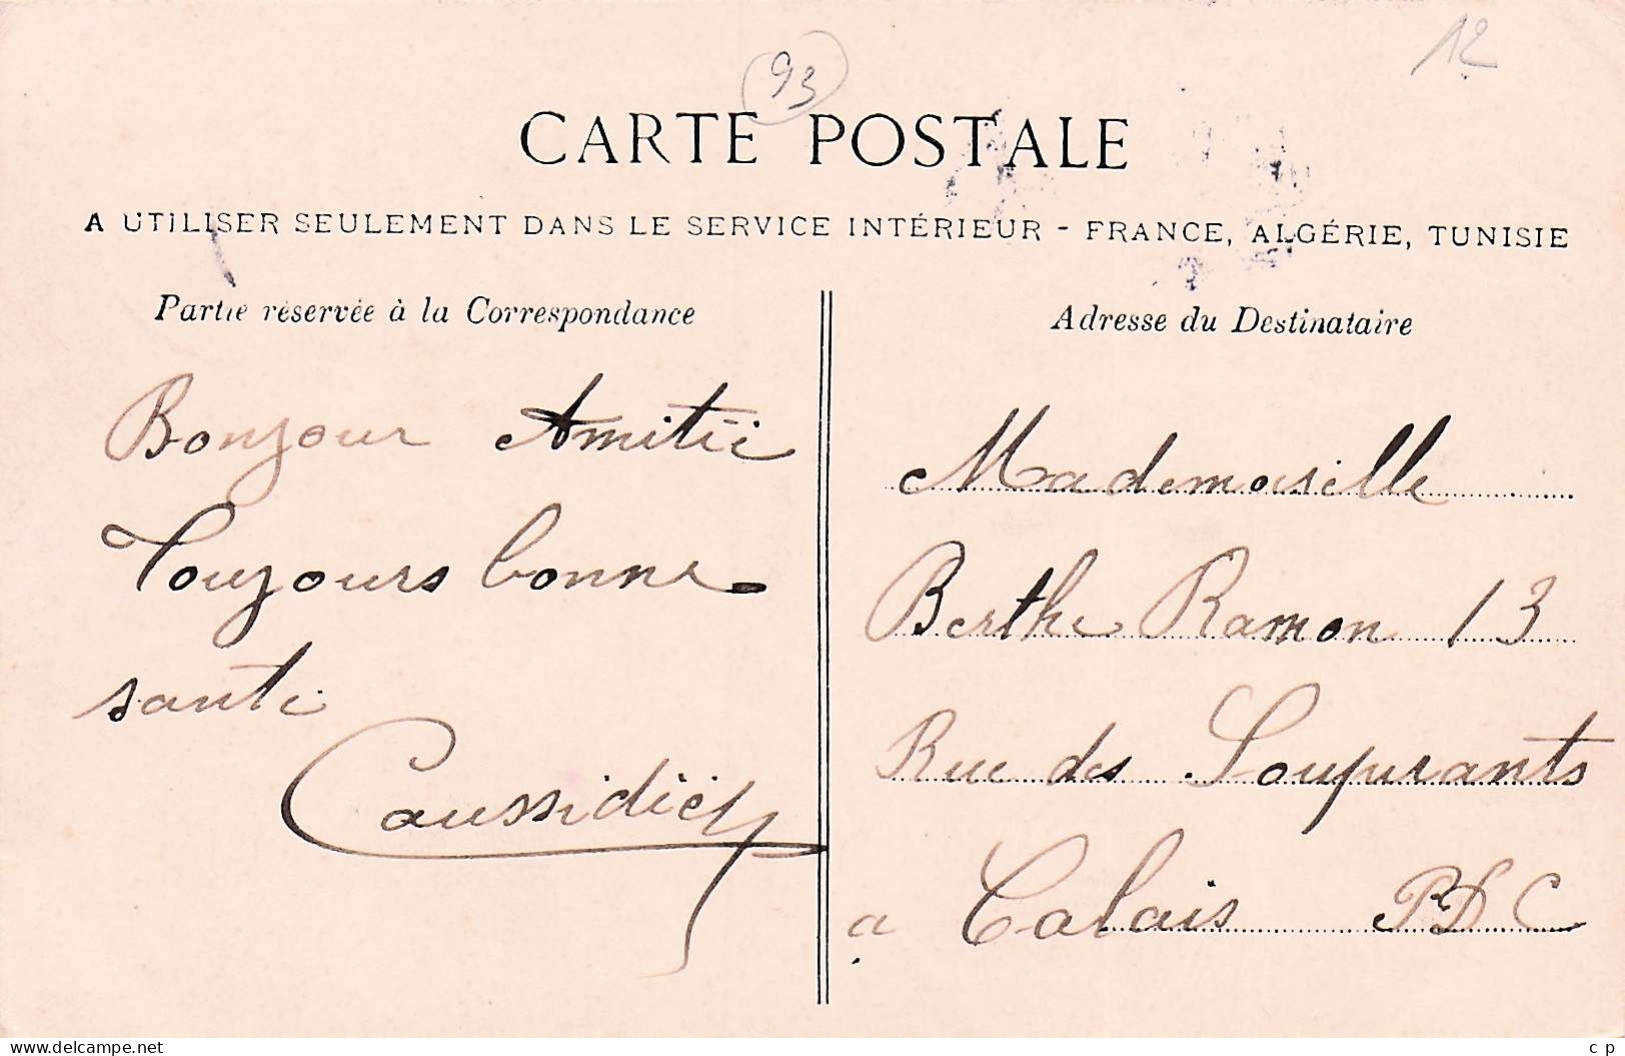 12
93
CARTE POSTALE
A UTILISER SEULEMENT DANS LE SERVICE INTÉRIEUR - FRANCE, ALGÉRIE, TUNISIE
Partie réservée à la Correspondance
Bonjour Amitié
Toujours bonne
santé
Adresse du Destinataire
Mademoiselle
Berthe Ramon 13
Rue des
a Calais P D C
delcampe.net
c p